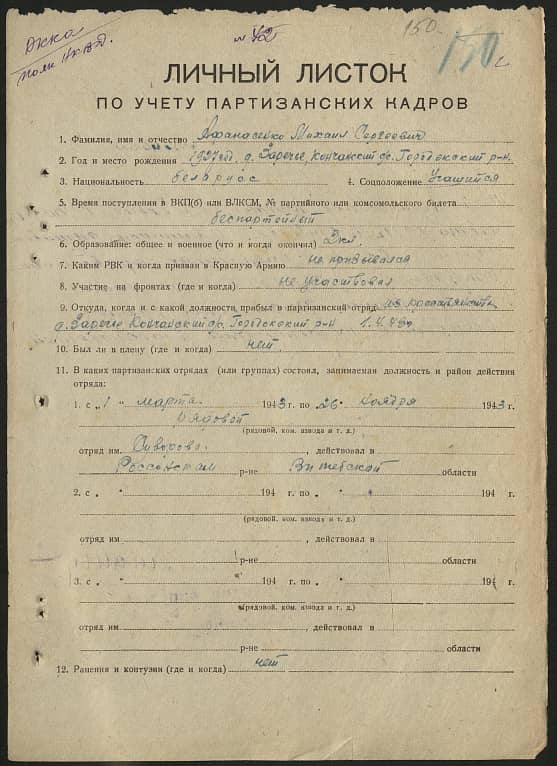 150.
150
№ 42
ЛИЧНЫЙ ЛИСТОК
ПО УЧЕТУ ПАРТИЗАНСКИХ КАДРОВ
1. Фамилия, имя и отчество Афанасенко Михаил Сергеевич
2. Год и место рождения 1927 г., д. Заречье, Кончанский с/с. Городокский р-н.
3. Национальность беларусс 4. Соцположение Учащийся
5. Время поступления в ВКП(б) или ВЛКСМ, № партийного или комсомольского билета
беспартейный
6. Образование: общее и военное (что и когда окончил) 2 кл.
7. Каким РВК и когда призван в Красную Армию не призывался
8. Участие на фронтах (где и когда) не участвовал
9. Откуда, когда и с какой должности прибыл в партизанский отряд из
д. Заречье Кончанский с/с. Городокский р-н.
10. Был ли в плену (где и когда) нет
11. В каких партизанских отрядах (или группах) состоял, занимаемая должность и район действия
отряда:
1. с „1 " марта 1943 г. по „26" ноября 1943 г.
рядовой
(рядовой, ком. взвода и т. д.)
отряд им. Суворова, действовал в
Россонском р-не Витебской области
2. с „ " 194 г. по „ " 194 г.
(рядовой, ком. взвода и т. д.)
отряд им , действовал в
р-не области
3. с „ " 194 г. по „ " 194 г.
(рядовой, ком. взвода и т. д.)
отряд им , действовал в
р-не области
12. Ранения и контузии (где и когда) нет